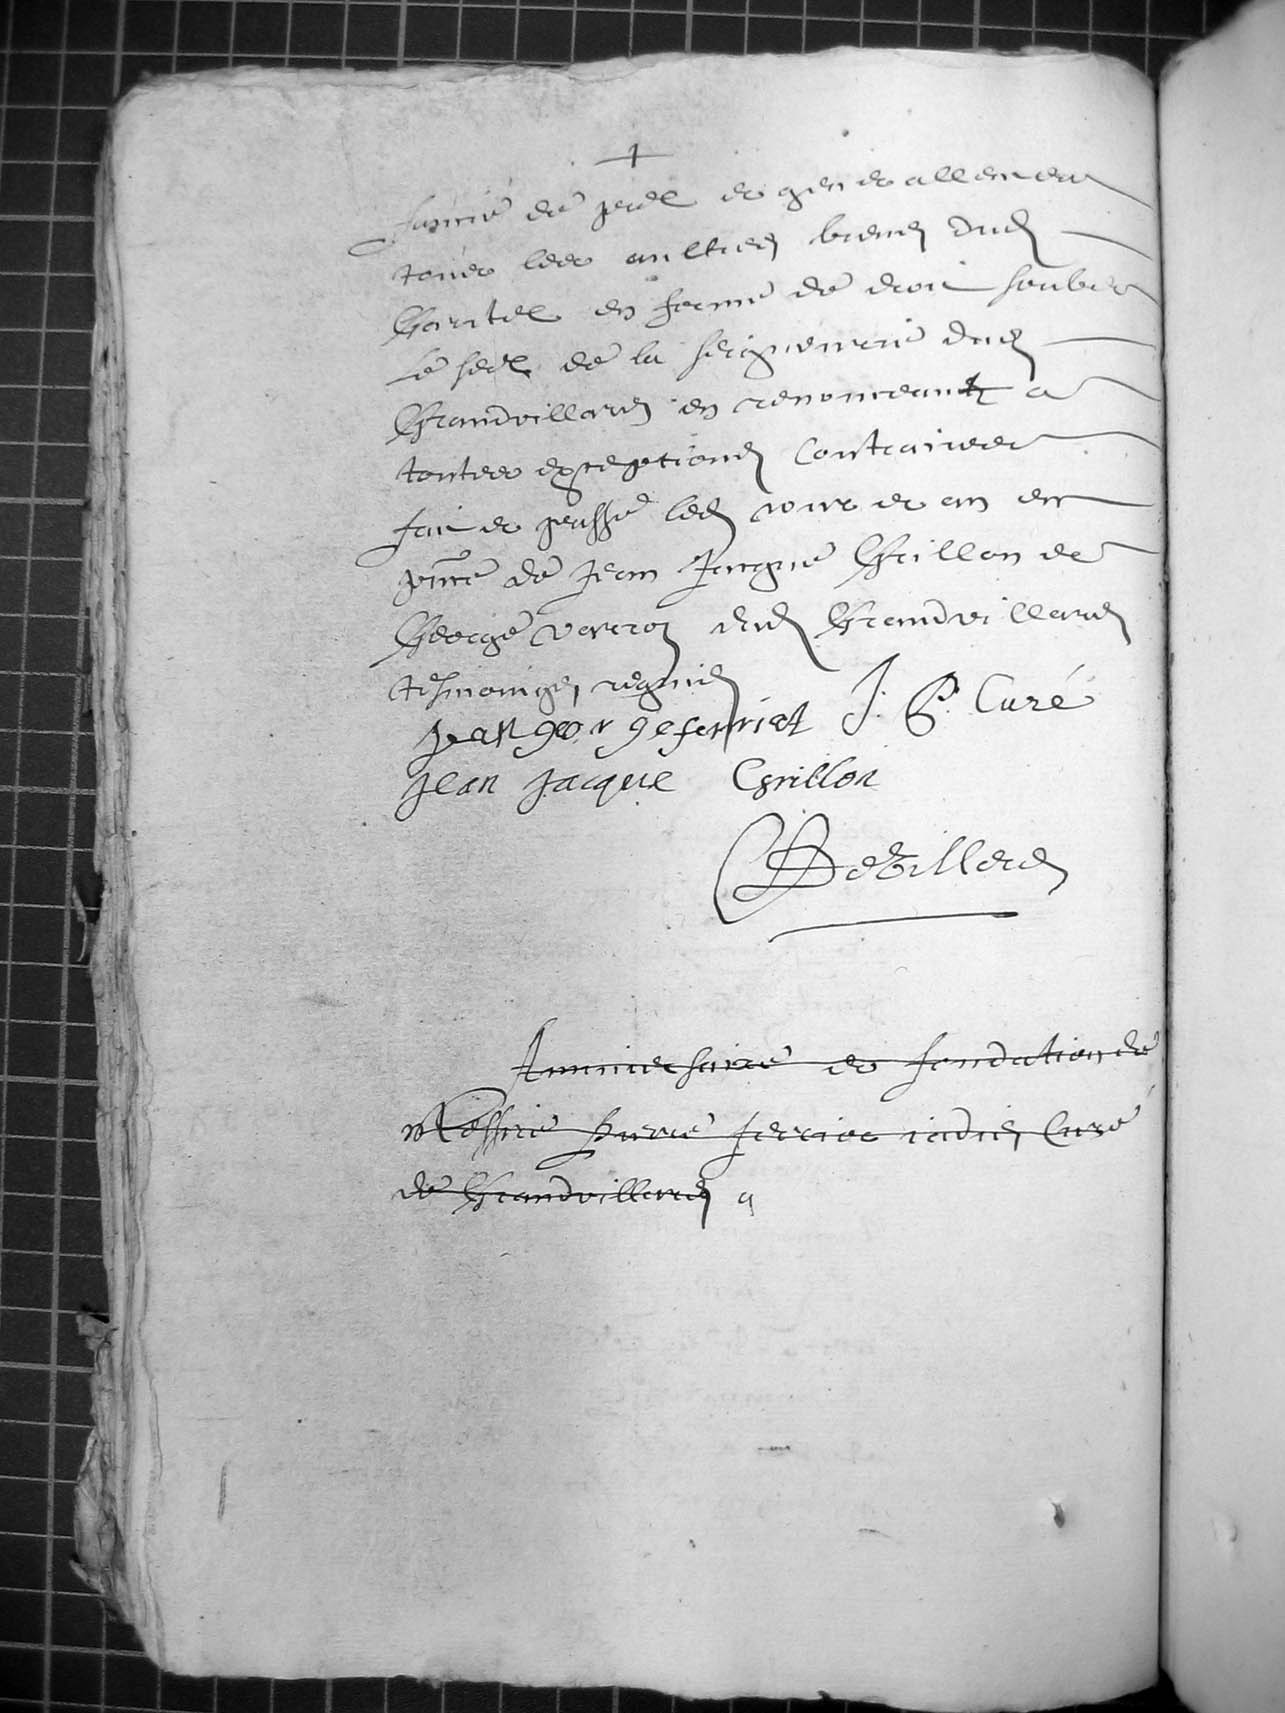 +
et generallement
tous les aultres biens dud
en forme de droit soubs
le seel de la seigneurie dud
Grandvillard en renonceant a
toutes exceptions Contraires
fait et passé led jour et an en
pnce de Jean Jacque Grillon et
George dud Grandvillard
tesmoings requis
Jean george ferriet J. P. Curé
Jean Jacque Grillon
Anniversaire et fondation de
Messire Pierre ferriet iadis Curé
de Grandvillard a